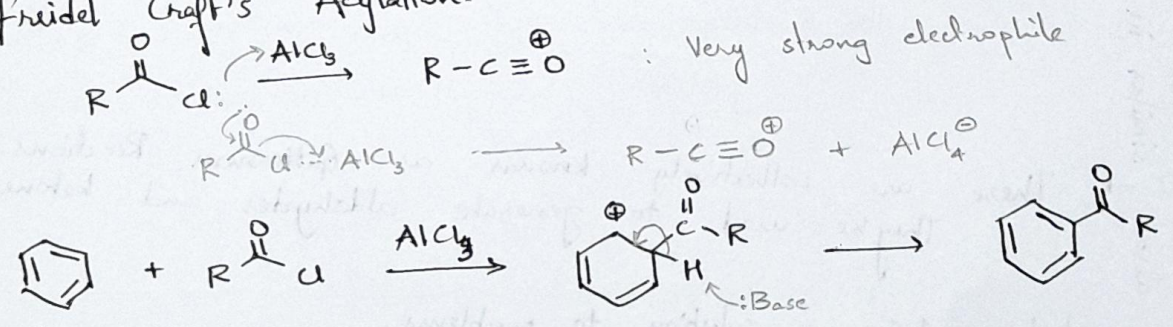 Freidel Craft's Acylation
O
R Cl: AlCl₃ R - C ≡ O⊕ : Very strong electrophile
O
R Cl AlCl₃ R - C ≡ O⊕ + AlCl₄⊖
O O O
+ R Cl AlCl₃ ⊕ C R R
H
:Base